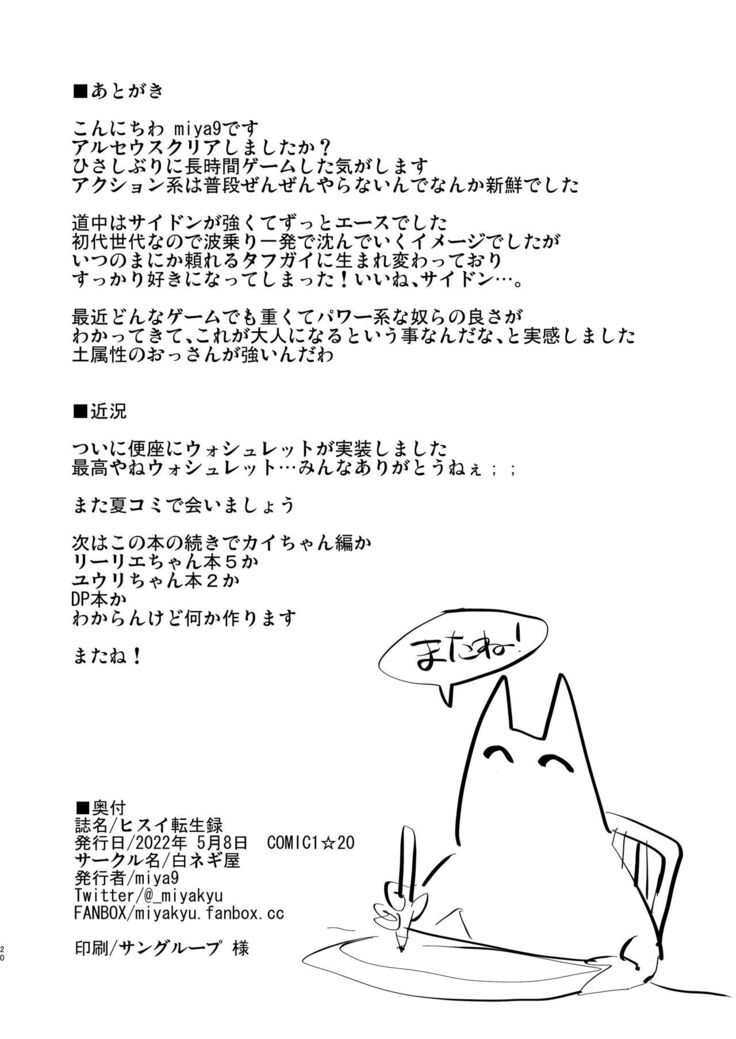 ■あとがき
こんにちわ miya9です
アルセウスクリアしましたか？
ひさしぶりに長時間ゲームした気がします
アクション系は普段ぜんぜんやらないんでなんか新鮮でした
道中はサイドンが強くてずっとエースでした
初代世代なので波乗り一発で沈んでいくイメージでしたが
いつのまにか頼れるタフガイに生まれ変わっており
すっかり好きになってしまった！いいね、サイドン…。
最近どんなゲームでも重くてパワー系な奴らの良さが
わかってきて、これが大人になるという事なんだな、と実感しました
土属性のおっさんが強いんだわ
■近況
ついに便座にウォシュレットが実装しました
最高やねウォシュレット…みんなありがとうねぇ；；
また夏コミで会いましょう
次はこの本の続きでカイちゃん編か
リーリエちゃん本５か
ユウリちゃん本２か
DP本か
わからんけど何か作ります
またね！
またね!
■奥付
誌名/ヒスイ転生録
発行日/2022年 5月8日　COMIC1☆20
サークル名/白ネギ屋
発行者/miya9
Twitter/@_miyakyu
FANBOX/miyakyu.fanbox.cc
印刷/サングループ 様
20